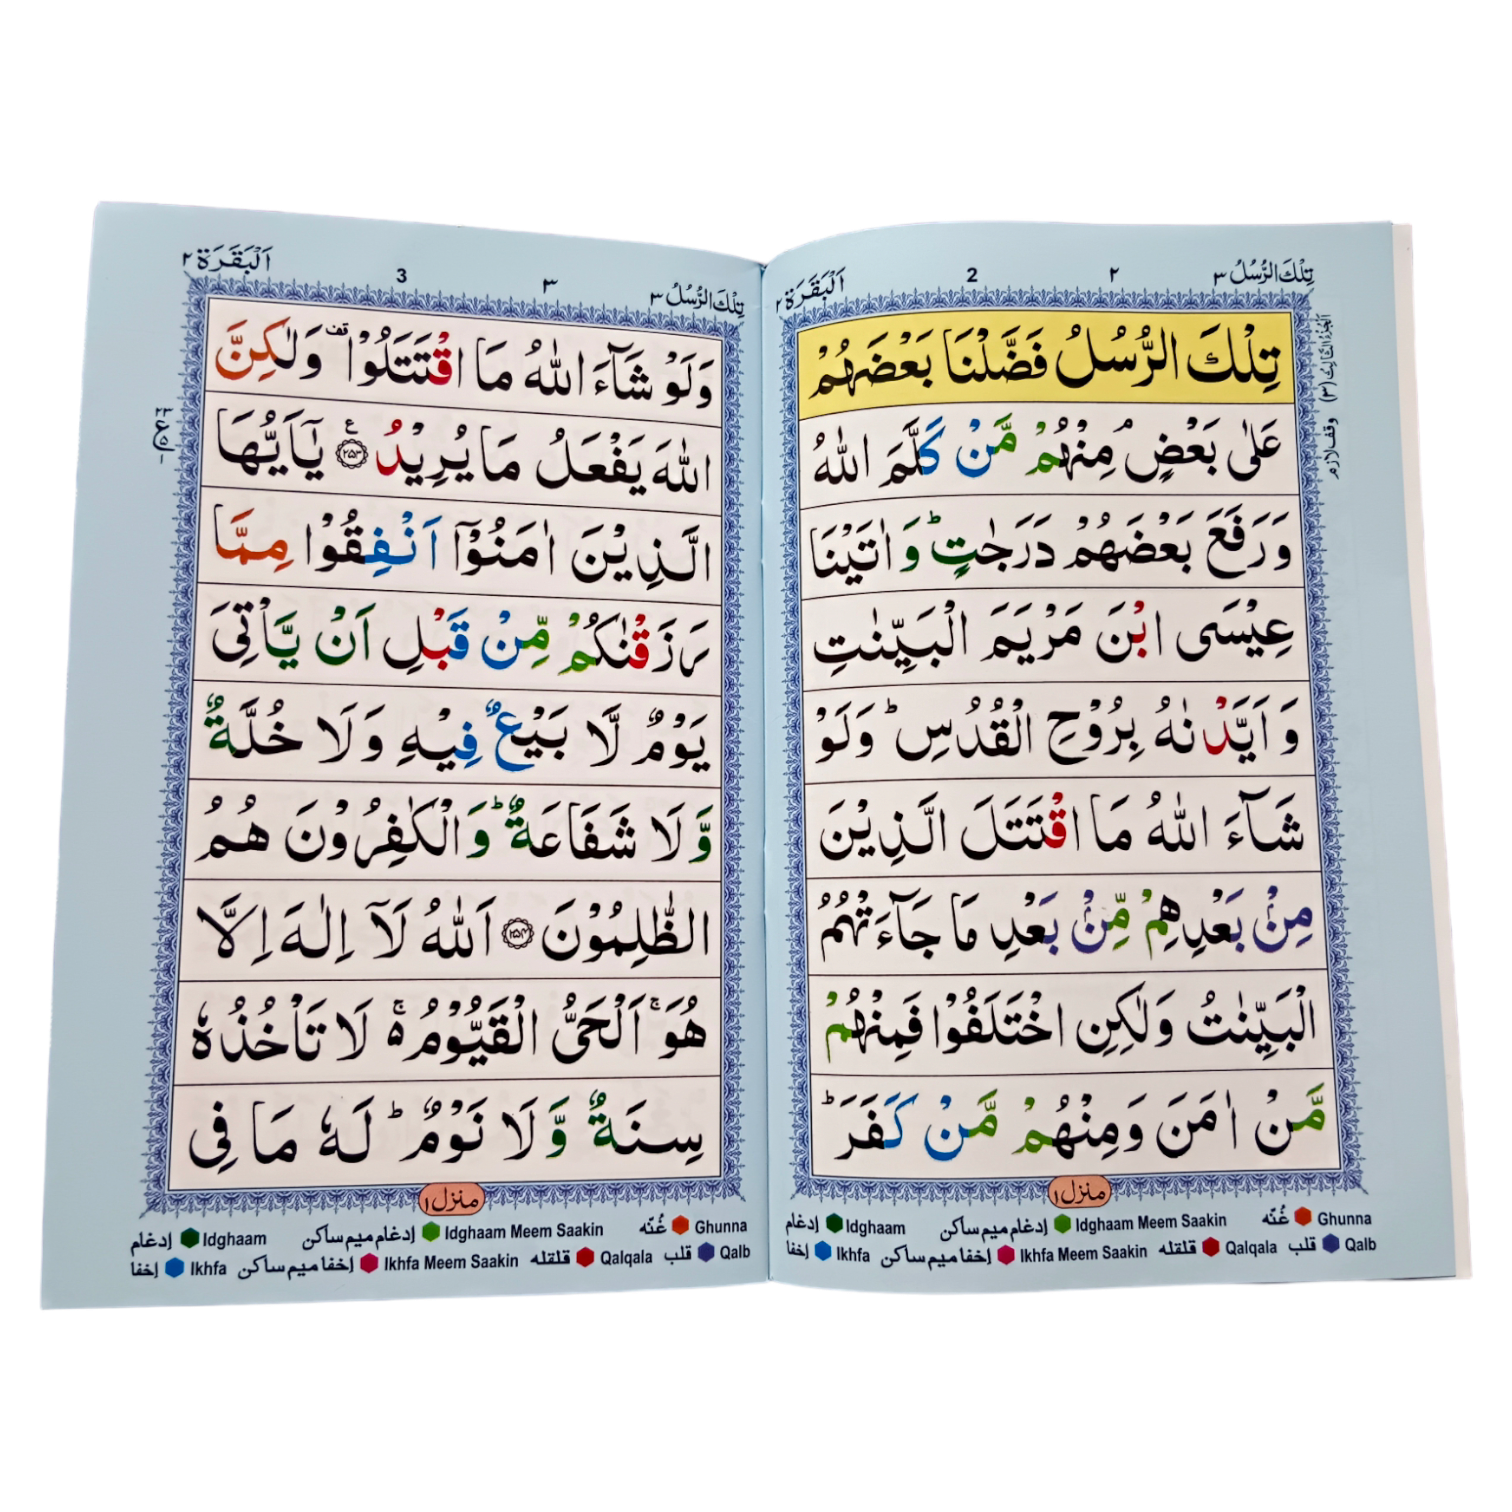 تِلْكَ الرُّسُلُ ٣
٢
2
اَلْبَقَرَة ٢
تِلْكَ الرُّسُلُ فَضَّلْنَا بَعْضَهُمْ
عَلٰى بَعْضٍ ۘ مِنْهُمْ مَّنْ كَلَّمَ اللّٰهُ
وَرَفَعَ بَعْضَهُمْ دَرَجٰتٍ ؕ وَاٰتَيْنَا
عِيْسَى ابْنَ مَرْيَمَ الْبَيِّنٰتِ
وَاَيَّدْنٰهُ بِرُوْحِ الْقُدُسِ ؕ وَلَوْ
شَآءَ اللّٰهُ مَا اقْتَتَلَ الَّذِيْنَ
مِنْۢ بَعْدِهِمْ مِّنْۢ بَعْدِ مَا جَآءَتْهُمُ
الْبَيِّنٰتُ وَلٰكِنِ اخْتَلَفُوْا فَمِنْهُمْ
مَّنْ اٰمَنَ وَمِنْهُمْ مَّنْ كَفَرَ ؕ
الْجُزْءُ الثَّالِثُ (٣)
وقف لازم
منزل ١
Ghunna غُنّه Idghaam Meem Saakin إدغام ميم ساكن Idghaam إدغام
Qalb قلب Qalqala قلقله Ikhfa Meem Saakin إخفا ميم ساكن Ikhfa إخفا
تِلْكَ الرُّسُلُ ٣
٣
3
اَلْبَقَرَة ٢
وَلَوْ شَآءَ اللّٰهُ مَا اقْتَتَلُوْا قف وَلٰكِنَّ
اللّٰهَ يَفْعَلُ مَا يُرِيْدُ ۝٢٥٣ ع يٰۤاَيُّهَا
الَّذِيْنَ اٰمَنُوْۤا اَنْفِقُوْا مِمَّا
رَزَقْنٰكُمْ مِّنْ قَبْلِ اَنْ يَّاْتِيَ
يَوْمٌ لَّا بَيْعٌ فِيْهِ وَلَا خُلَّةٌ
وَّلَا شَفَاعَةٌ ؕ وَالْكٰفِرُوْنَ هُمُ
الظّٰلِمُوْنَ ۝٢٥٤ اَللّٰهُ لَاۤ اِلٰهَ اِلَّا
هُوَ ۚ اَلْحَيُّ الْقَيُّوْمُ ۚ۬ لَا تَاْخُذُهٗ
سِنَةٌ وَّلَا نَوْمٌ ؕ لَهٗ مَا فِي
منزل ١
Ghunna غُنّه Idghaam Meem Saakin إدغام ميم ساكن Idghaam إدغام
Qalb قلب Qalqala قلقله Ikhfa Meem Saakin إخفا ميم ساكن Ikhfa إخفا